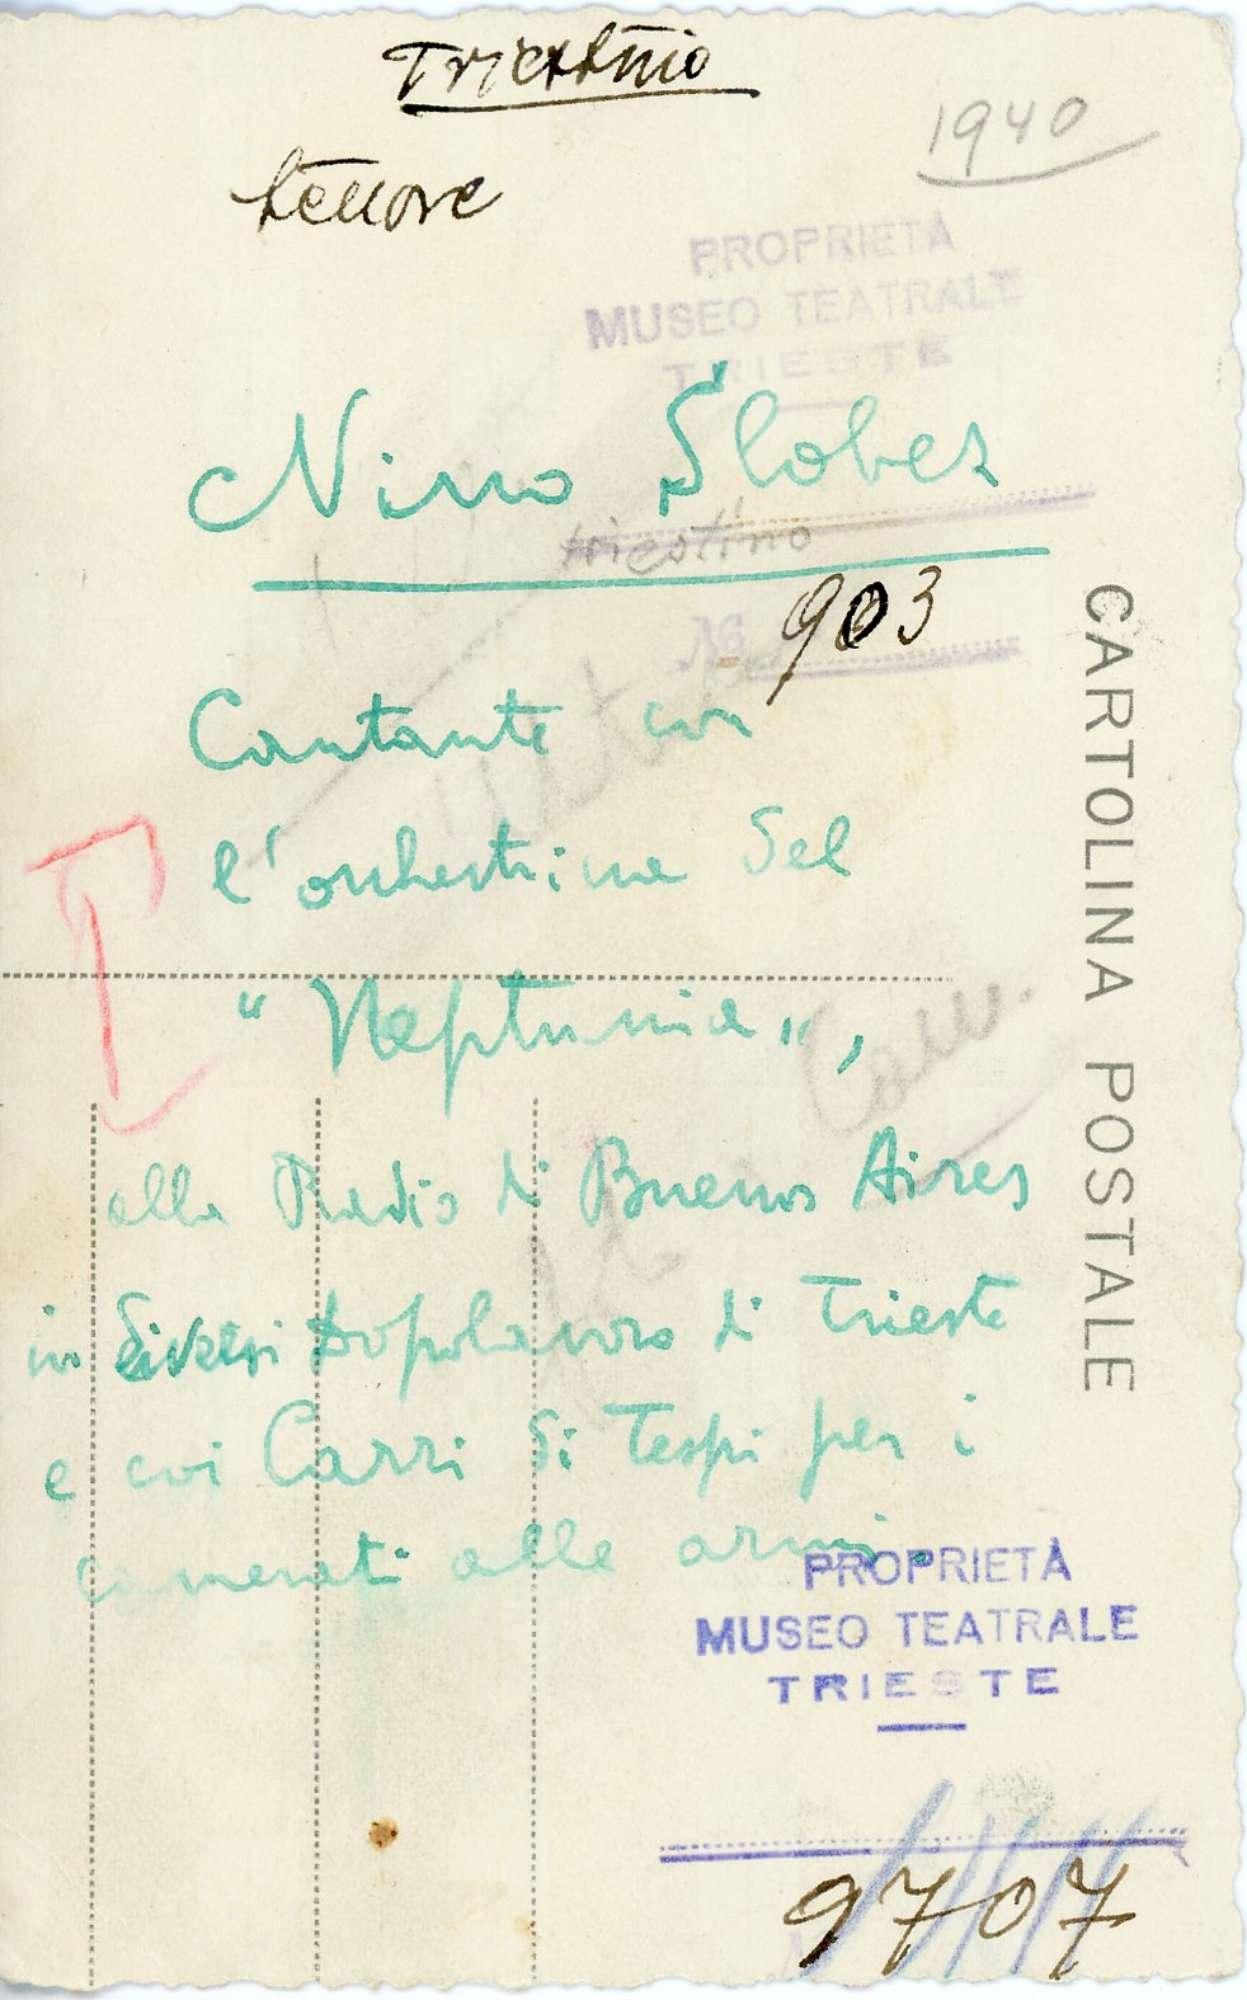 triestino
1940
tenore
PROPRIETÀ
MUSEO TEATRALE
TRIESTE
Nino Slobez
triestino
№ 903
Cantante con
l'orchestrina del
"Neptunia",
alla Radio di Buenos Aires
in diversi Dopolavoro di Trieste
e coi Carri di Tespi per i
camerati alle armi.
CARTOLINA POSTALE
PROPRIETÀ
MUSEO TEATRALE
TRIESTE
9707